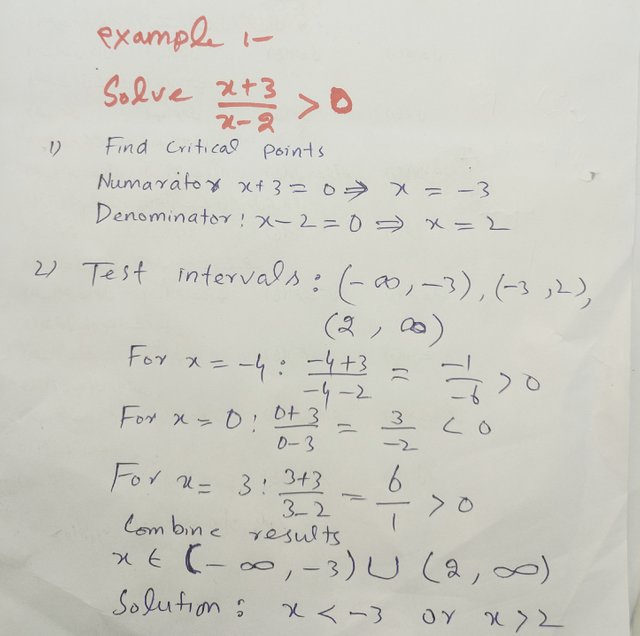 example 1-
Solve x+3/x-2 > 0
1) Find Critical points
Numarator x+3 = 0 ⇒ x = -3
Denominator: x-2 = 0 ⇒ x = 2
2) Test intervals: (-∞, -3), (-3, 2),
(2, ∞)
For x = -4: -4+3/-4-2 = -1/-6 > 0
For x = 0: 0+3/0-3 = 3/-2 < 0
For x = 3: 3+3/3-2 = 6/1 > 0
Combine results
x ∈ (-∞, -3) ∪ (2, ∞)
Solution: x < -3 or x > 2